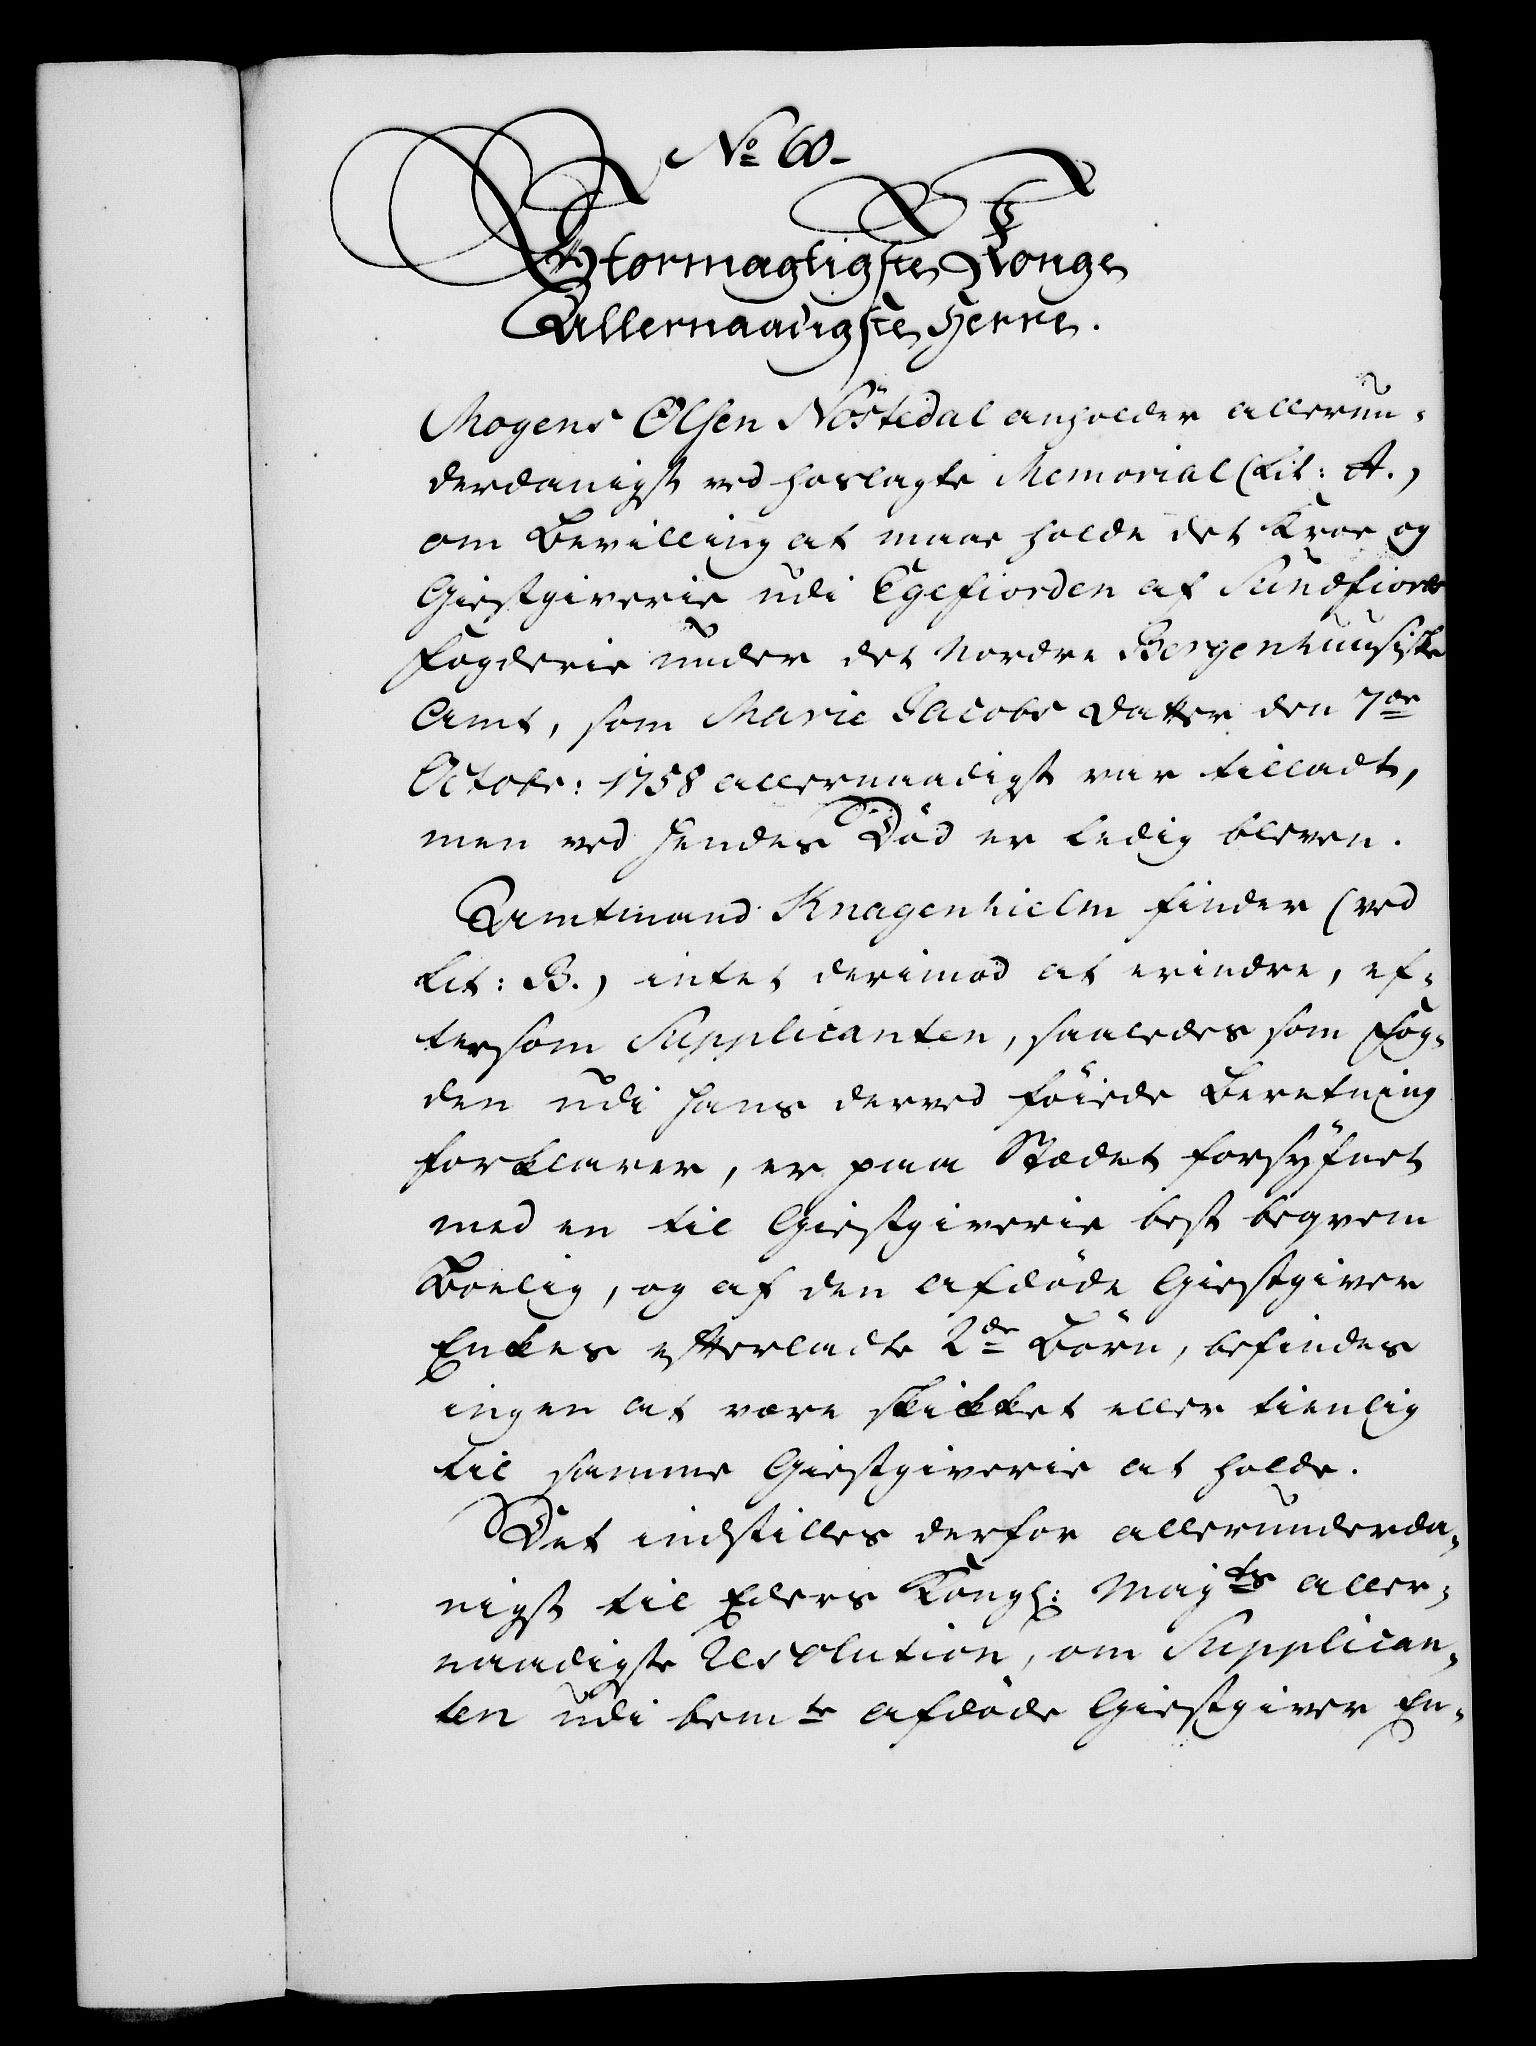 No 60.
Stormægtigste Konge
Allernaadigste Herre.
Mogens Olsen Nöstedal anholder allerun-
derdanigst ved hoslagte Memorial (Lit: A.)
om Bevilling at maae holde det Kroe og
Giestgiverie udi Egefiorden af Sundfiords
Fogderie under det Nordre Bergenhuusiske
Amt, som Marie Jacobs Datter den 7de
Octobr: 1758 allernaadigst var tilladt,
men ved hendes Död er ledig bleven.
Amtmand Knagenhielm finder (ved
Lit: B.) intet derimod at erindre, ef-
tersom Supplicanten, saaledes som Fog-
den udi hans derved föiede Beretning
forklarer, er paa Stædet forsÿnet
med en til Giestgiverie best beqvem
Boelig, og af den afdöde Giestgiver
Enkes efterladte 2de Börn, befindes
ingen at være skikket eller tienlig
til samme Giestgiverie at holde.
Det indstilles derfor allerunderda-
nigst til Eders Kongl: Majts aller-
naadigste Resolution, om Supplican-
ten udi bemte afdöde Giestgiver En-